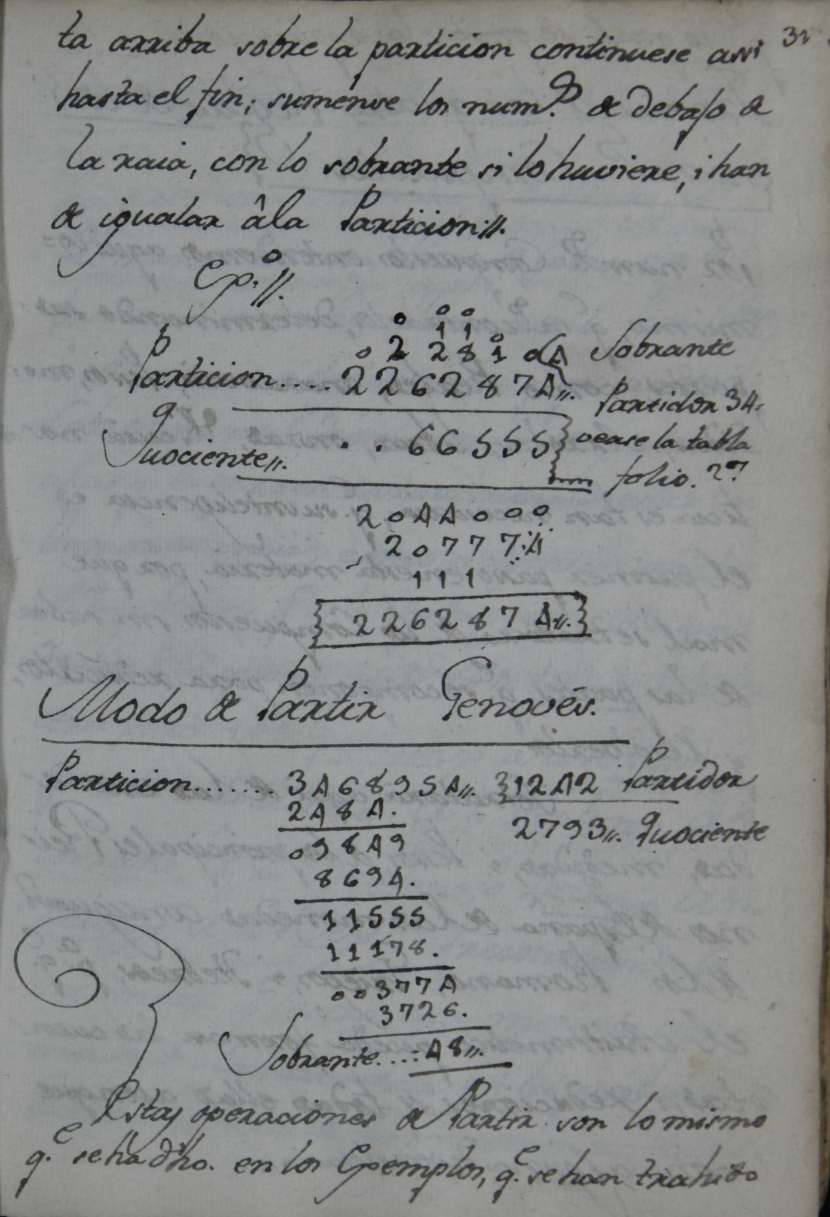 31
ta arriba sobre la particion continuese assi
hasta el fin; sumense los num.os de debajo de
la raia, con lo sobrante si lo huviere, i han
de igualar âla Particion//.
Ep.o//.
0 0 0
1 1
0 2 2 8 1 0 04 Sobrante
Particion.... 2262874//. Partidor 34.
Quociente//. . . 66555 vease la tabla
folio. 27
2044000
207774
111
2262874//.
Modo de Partir Genovés.
Particion....... 3468954//. 1242 Partidor
2484. 2793//. Quociente
09849
8694.
11555
11178.
003774
3726.
Sobrante....48//.
Estas operaciones de Partir son lo mismo
q.e se hâ dho. en los Exemplos, q.e se han trahido